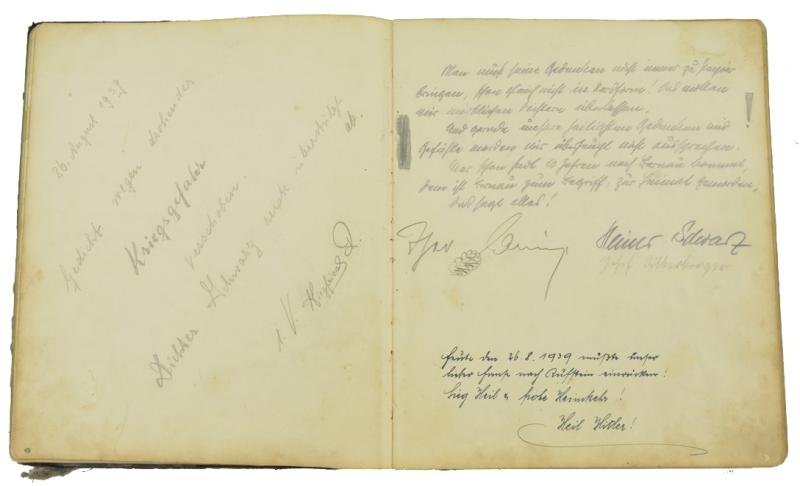 26. August 1939
Gedicht wegen drohender
Kriegsgefahr
verschoben.
Dichter Schwarz reist überstürzt
ab.
i. V.
Man muß seine Gedanken nicht immer zu Papier
bringen, schon gleich nicht in Versform! Das wollen
wir wirklichen Dichtern überlassen.
Und gerade unsere heiligsten Gedanken und
Gefühle werden wir überhaupt nicht aussprechen.
Wer schon seit 10 Jahren nach Bernau kommt,
dem ist Bernau zum Begriff, zur Heimat geworden,
Das sagt alles!
Heiner Schwarz
Josef
Heute den 26.8.1939 mußte unser
lieber nach Kufstein einrücken!
Sieg Heil u. frohe Heimkehr!
Heil Hitler!